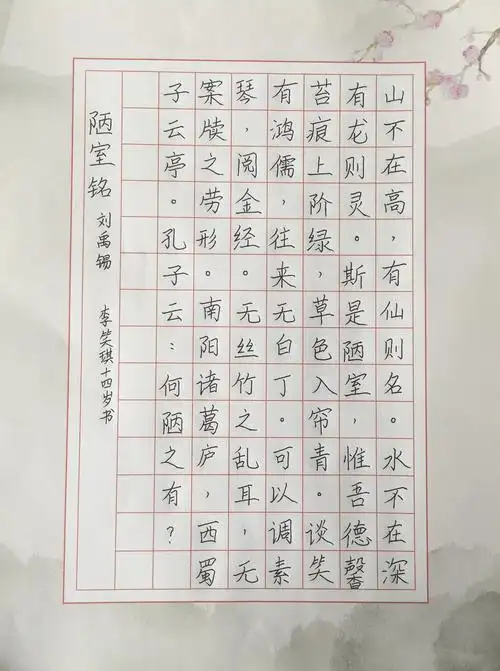 山不在高，有仙则名。水不在深
有龙则灵。斯是陋室，惟吾德馨
苔痕上阶绿，草色入帘青。谈笑
有鸿儒，往来无白丁。可以调素
琴，阅金经。无丝竹之乱耳，无
案牍之劳形。南阳诸葛庐，西蜀
子云亭。孔子云：何陋之有？
陋室铭 刘禹锡 李笑琪十四岁书